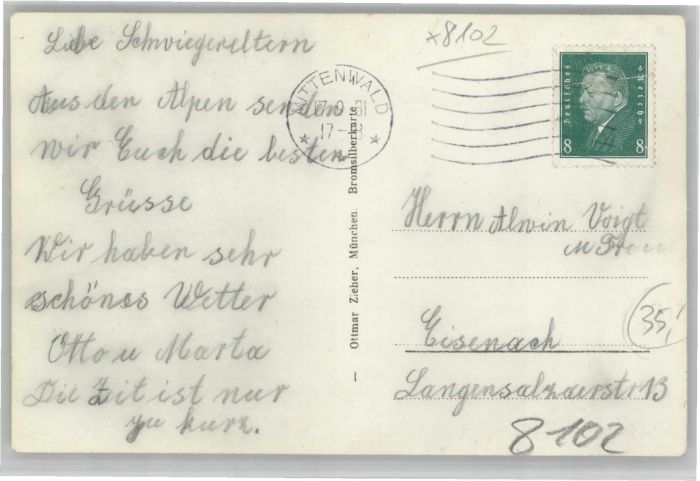 Liebe Schwiegereltern
Aus den Alpen senden
wir Euch die besten
Grüsse
Wir haben sehr
schönes Wetter
Otto u Marta
Die Zeit ist nur
zu kurz.
x8102
MITTENWALD
17.9.31
17-18
Deutsches Reich
8 8
Ottmar Zieher, München Bromsilberkarte
Herrn Alwin Voigt
u Frau
Eisenach
Langensalzaerstr 13
35,-
8102